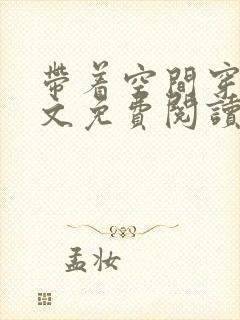 帶着空間穿
文免費閱讀
孟妆